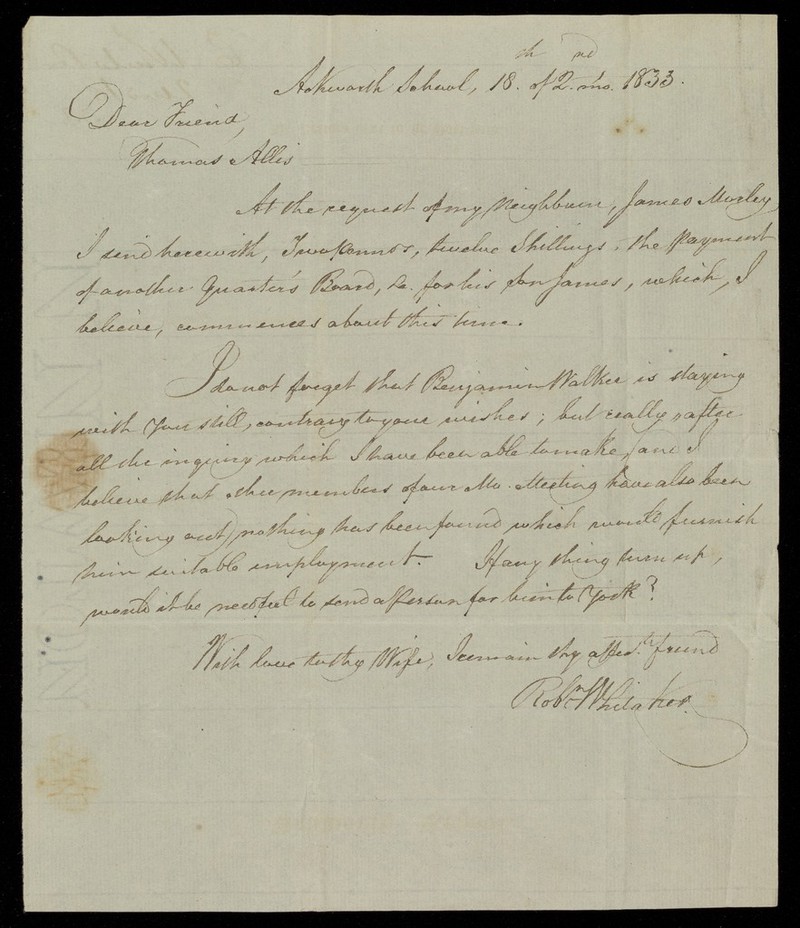 Ackworth School, 18.th of 2.nd mo. 1833.
Dear Friend,
Thomas Allis
At the request of my Neighbour, James Morley,
I send herewith, Two Pounds, twelve Shillings, the Payment
of another Quarter's Board, &c. for his Son James, which, I
believe, commences about this time.
I do not forget that Benjamin Walker is staying
with you still, contrary to your wishes; but really, after
all the inquiry which I have been able to make, (and I
believe that other members of our Mo. Meeting have also been
looking out) nothing has been found which would furnish
him suitable employment. If any thing turn up,
would it be needful to send a Person for him to York?
With love to thy Wife, I remain thy affec.te friend
Rob.t Whitaker.